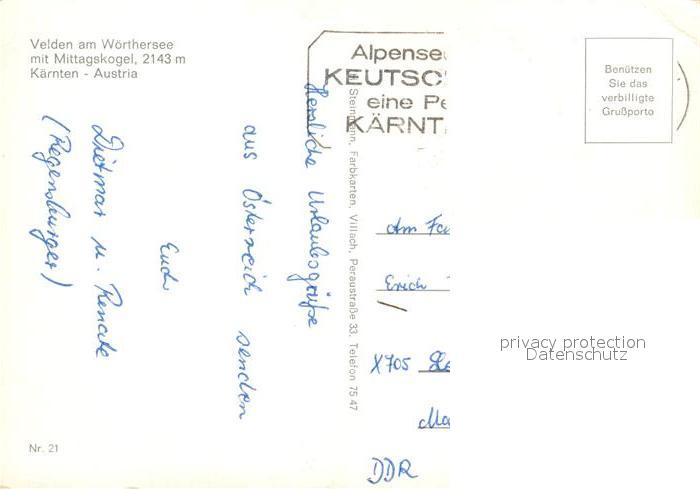 Velden am Wörthersee
mit Mittagskogel, 2143 m
Kärnten - Austria
Alpensee
KEUTSC
eine Pe
KÄRNT
Benützen
Sie das
verbilligte
Grußporto
Herzliche Urlaubsgrüße
aus Österreich senden
Euch
Dietmar u. Renate
(Regensburger)
Steinmann, Farbkarten, Villach, Peraustraße 33, Telefon 75 47
An Fa
Erich
X705
DDR
Nr. 21
privacy protection
Datenschutz